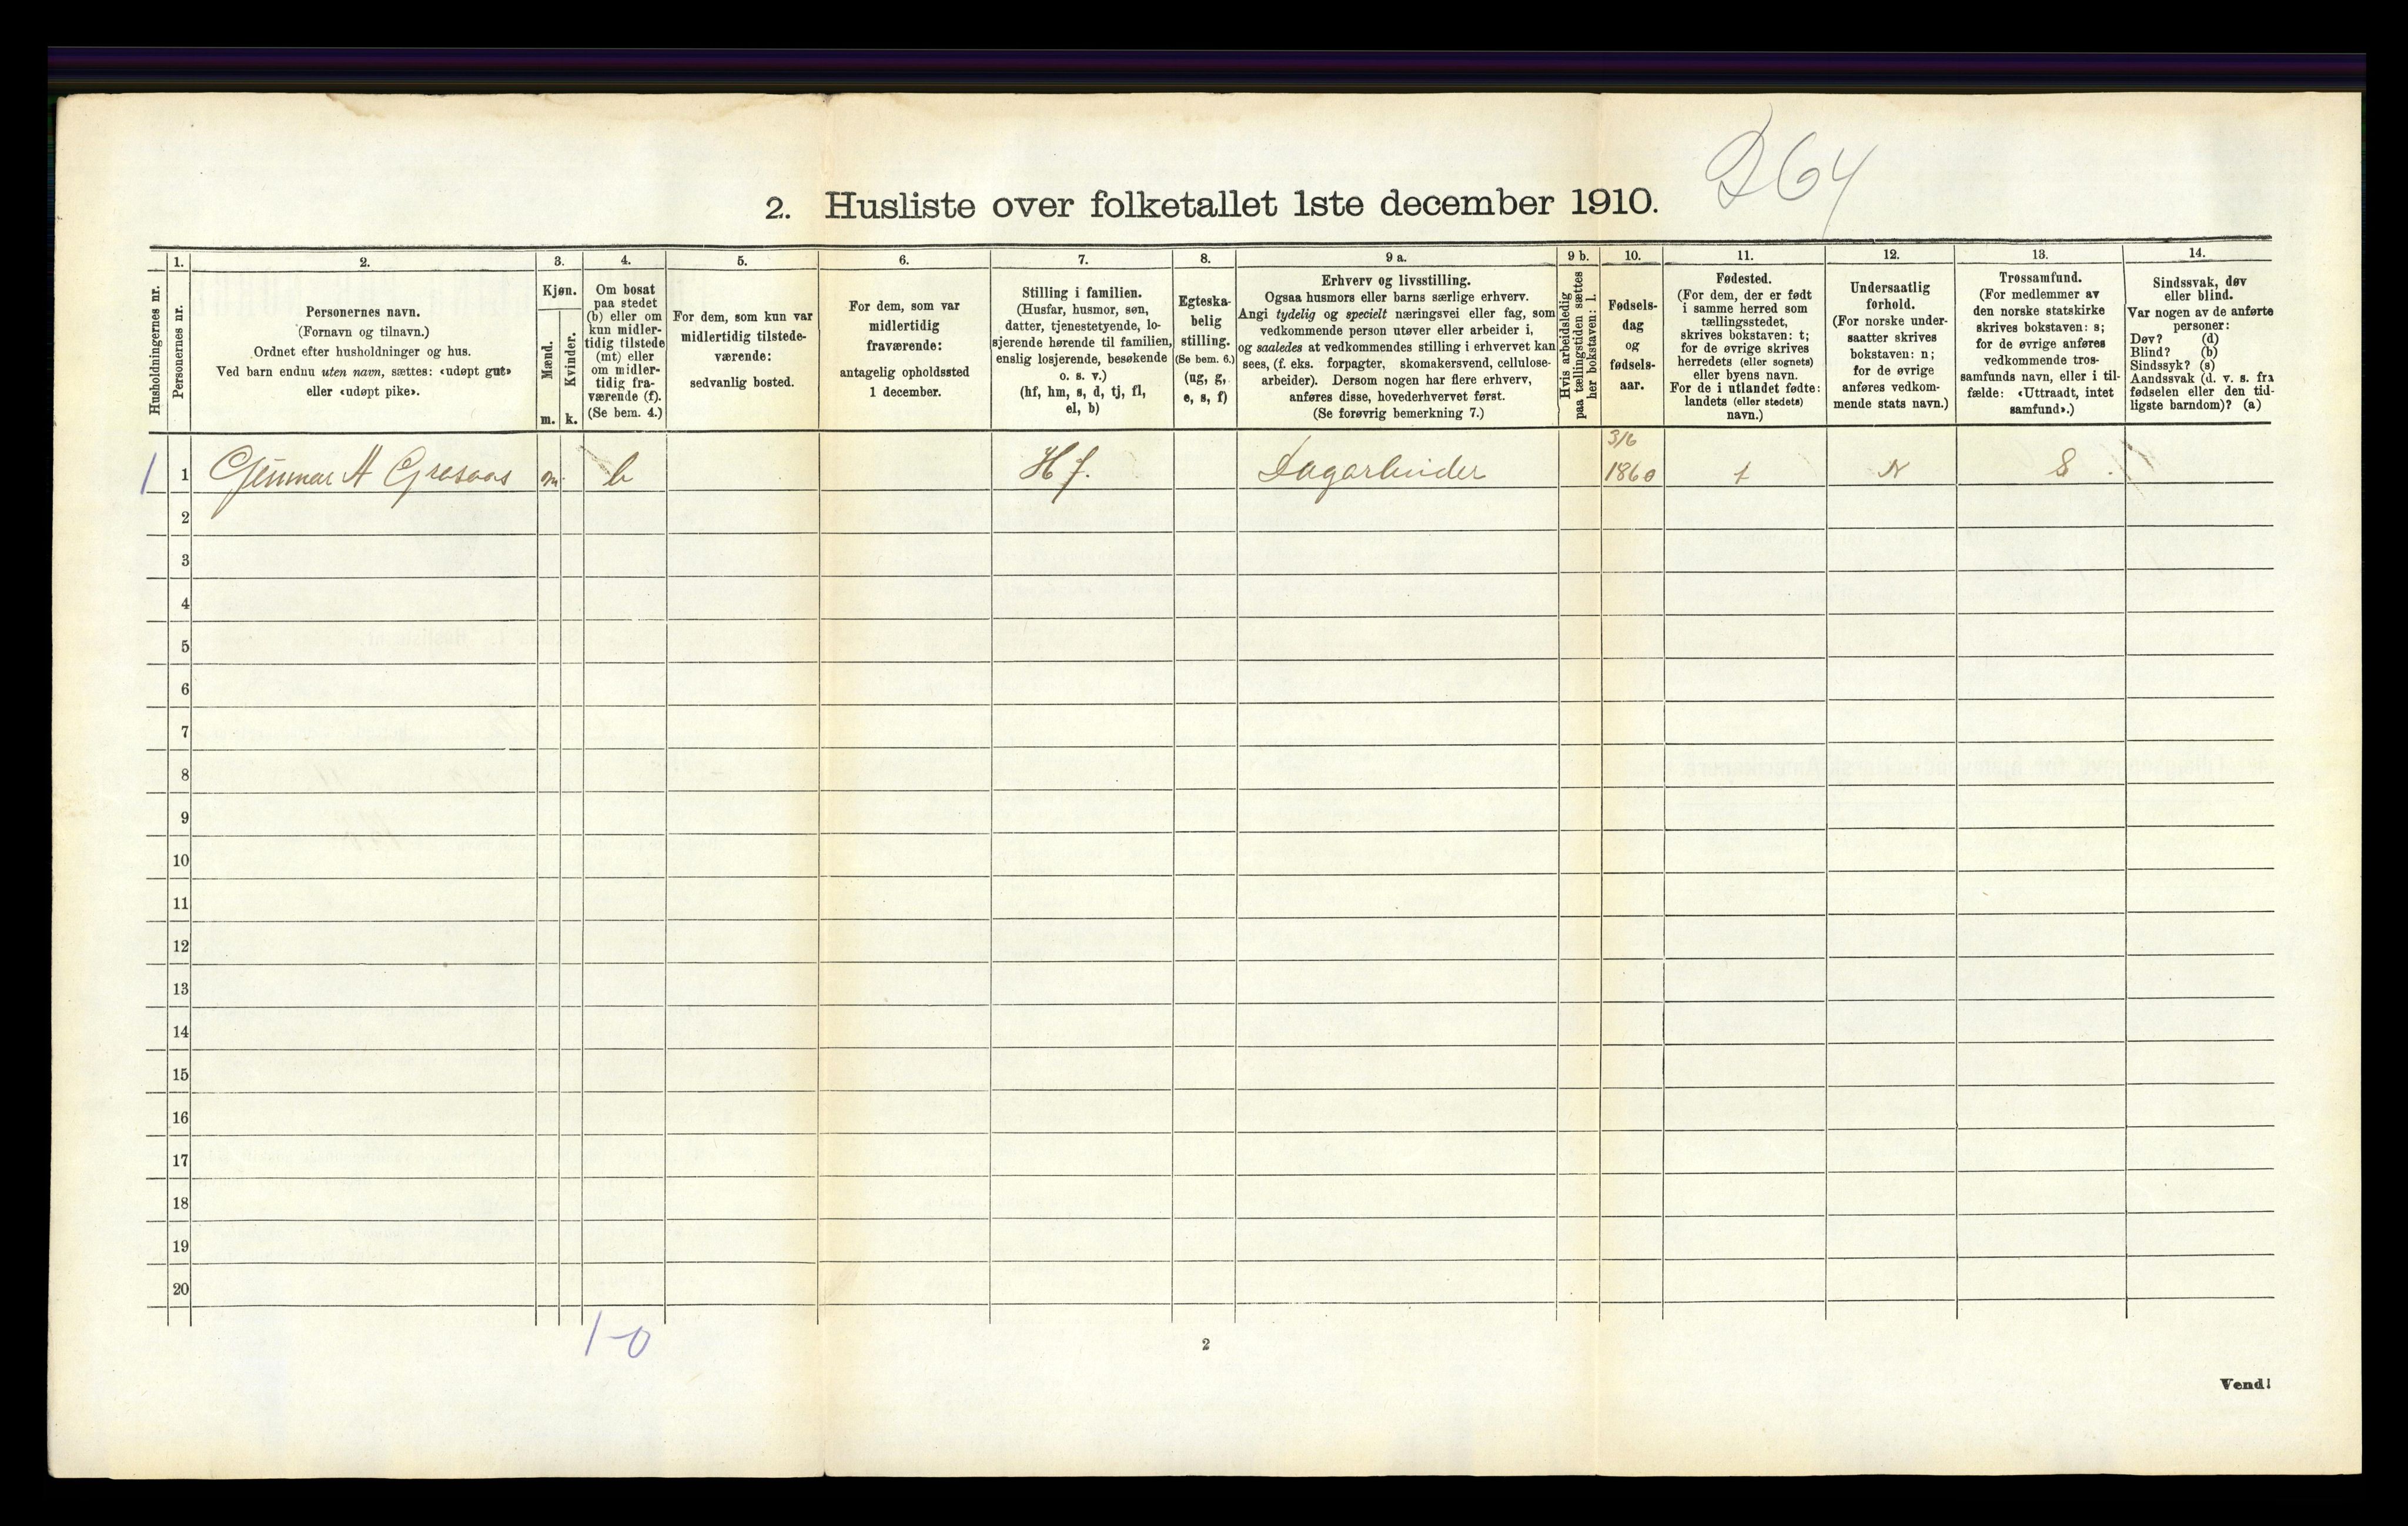 D 64
2. Husliste over folketallet 1ste december 1910.
1. 2. 3. 4. 5. 6. 7. 8. 9 a. 9 b. 10. 11. 12. 13. 14.
Husholdningernes nr.
Personernes nr.
Personernes navn.
(Fornavn og tilnavn.)
Ordnet efter husholdninger og hus.
Ved barn endnu uten navn, sættes: «udøpt gut»
eller «udøpt pike».
Kjøn.
Mænd.
Kvinder.
m. k.
Om bosat
paa stedet
(b) eller om
kun midler-
tidig tilstede
(mt) eller
om midler-
tidig fra-
værende (f).
(Se bem. 4.)
For dem, som kun var
midlertidig tilstede-
værende:
sedvanlig bosted.
For dem, som var
midlertidig
fraværende:
antagelig opholdssted
1 december.
Stilling i familien.
(Husfar, husmor, søn,
datter, tjenestetyende, lo-
sjerende hørende til familien,
enslig losjerende, besøkende
o. s. v.)
(hf, hm, s, d, tj, fl,
el, b)
Egteska-
belig
stilling.
(Se bem. 6.)
(ug, g,
e, s, f)
Erhverv og livsstilling.
Ogsaa husmors eller barns særlige erhverv.
Angi tydelig og specielt næringsvei eller fag, som
vedkommende person utøver eller arbeider i,
og saaledes at vedkommendes stilling i erhvervet kan
sees, (f. eks. forpagter, skomakersvend, cellulose-
arbeider). Dersom nogen har flere erhverv,
anføres disse, hovederhvervet først.
(Se forøvrig bemerkning 7.)
Hvis arbeidsledig
paa tællingstiden sættes
her bokstaven: l.
Fødsels-
dag
og
fødsels-
aar.
Fødested.
(For dem, der er født
i samme herred som
tællingsstedet,
skrives bokstaven: t;
for de øvrige skrives
herredets (eller sognets)
eller byens navn.
For de i utlandet fødte:
landets (eller stedets)
navn.)
Undersaatlig
forhold.
(For norske under-
saatter skrives
bokstaven: n;
for de øvrige
anføres vedkom-
mende stats navn.)
Trossamfund.
(For medlemmer av
den norske statskirke
skrives bokstaven: s;
for de øvrige anføres
vedkommende tros-
samfunds navn, eller i til-
fælde: «Uttraadt, intet
samfund».)
Sindssvak, døv
eller blind.
Var nogen av de anførte
personer:
Døv? (d)
Blind? (b)
Sindssyk? (s)
Aandssvak (d. v. s. fra
fødselen eller den tid-
ligste barndom)? (a)
3/6
1 1 Gunnar A Grasaas m. b Hf. Dagarbeider 1860 t N S
2
3
4
5
6
7
8
9
10
11
12
13
14
15
16
17
18
19
20
1-0
2
Vend!